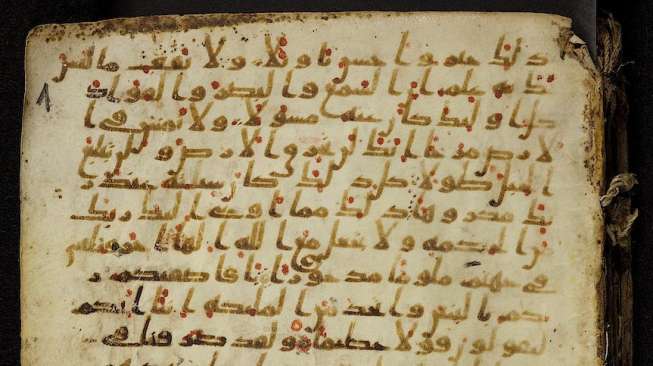 ذلك خير واحسن تاويلا ولا تقف ما ليس
لك به علم ان السمع والبصر والفواد
كل اولئك كان عنه مسولا ولا تمش في ا
لارض مرحا انك لن تخرق الارض ولن تبلغ
الجبال طولا كل ذلك كان سيئه عند ر
بك مكروها ذلك مما اوحى اليك ربك
من الحكمه ولا تجعل مع الله الها اخر فتلقى
في جهنم ملوما مدحورا افاصفيكم ر
بكم بالبنين واتخذ من الملئكه انثا انكم
لتقولون قولا عظيما ولقد صرفنا في